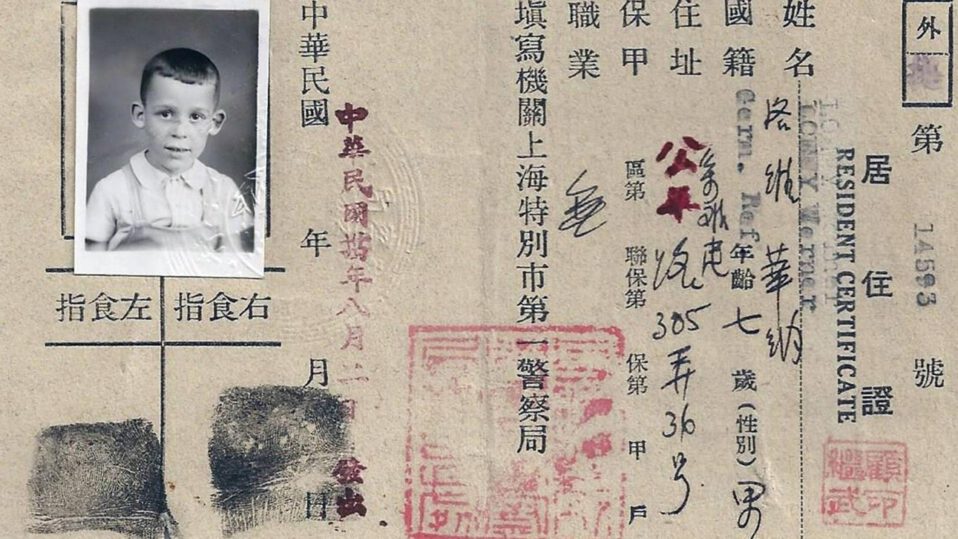 外
第 14593 號
居住證
RESIDENT CERTIFICATE
Werner
姓名 洛維 華納
國籍 Germ. Ref. 年齡 七 歲(性別)男
住址 公平路 305 弄 36 号
保甲 區第 聯保第 保第 甲 戶
職業 無
填寫機關上海特別市第一警察局
中華民國 年 月 日
年八月二日發出
右食指
左食指
顧繼武印